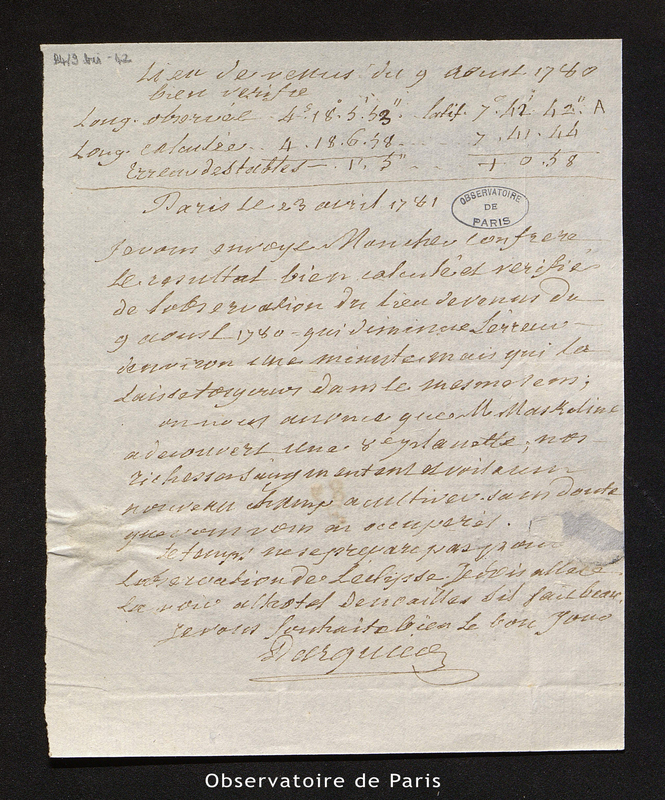 B4/9 bis - 42
Lieu de venus du 9 aoust 1780
bien verifie
Long. observée 4ˢ 18° 5' 53" latit. 7° 42' 42" A
Long. calculée 4. 18. 6. 58 7. 41. 44
Erreur des tables — 1' 5" + 0. 58
Paris le 23 avril 1781
OBSERVATOIRE
DE
PARIS
Je vous envoye Mon cher confrere
le resultat bien calculé et verifie
de lobservation du lieu de venus du
9 aoust 1780 qui diminue l'erreur
denviron une minute mais qui la
laisse toujours dans le mesme sens;
on nous anonce que M Maskeline
a decouvert une 8e planette; nos
richesses augmentent et voila un
nouveau champ a cultiver sans doute
que vous vous en occuperés.
le temps ne se prepare pas pour
lobservation de Leclipse Je dois aller
la voir a lhotel de noailles sil fait beau.
Je vous souhaite bien le bon Jour
Darquier
Observatoire de Paris